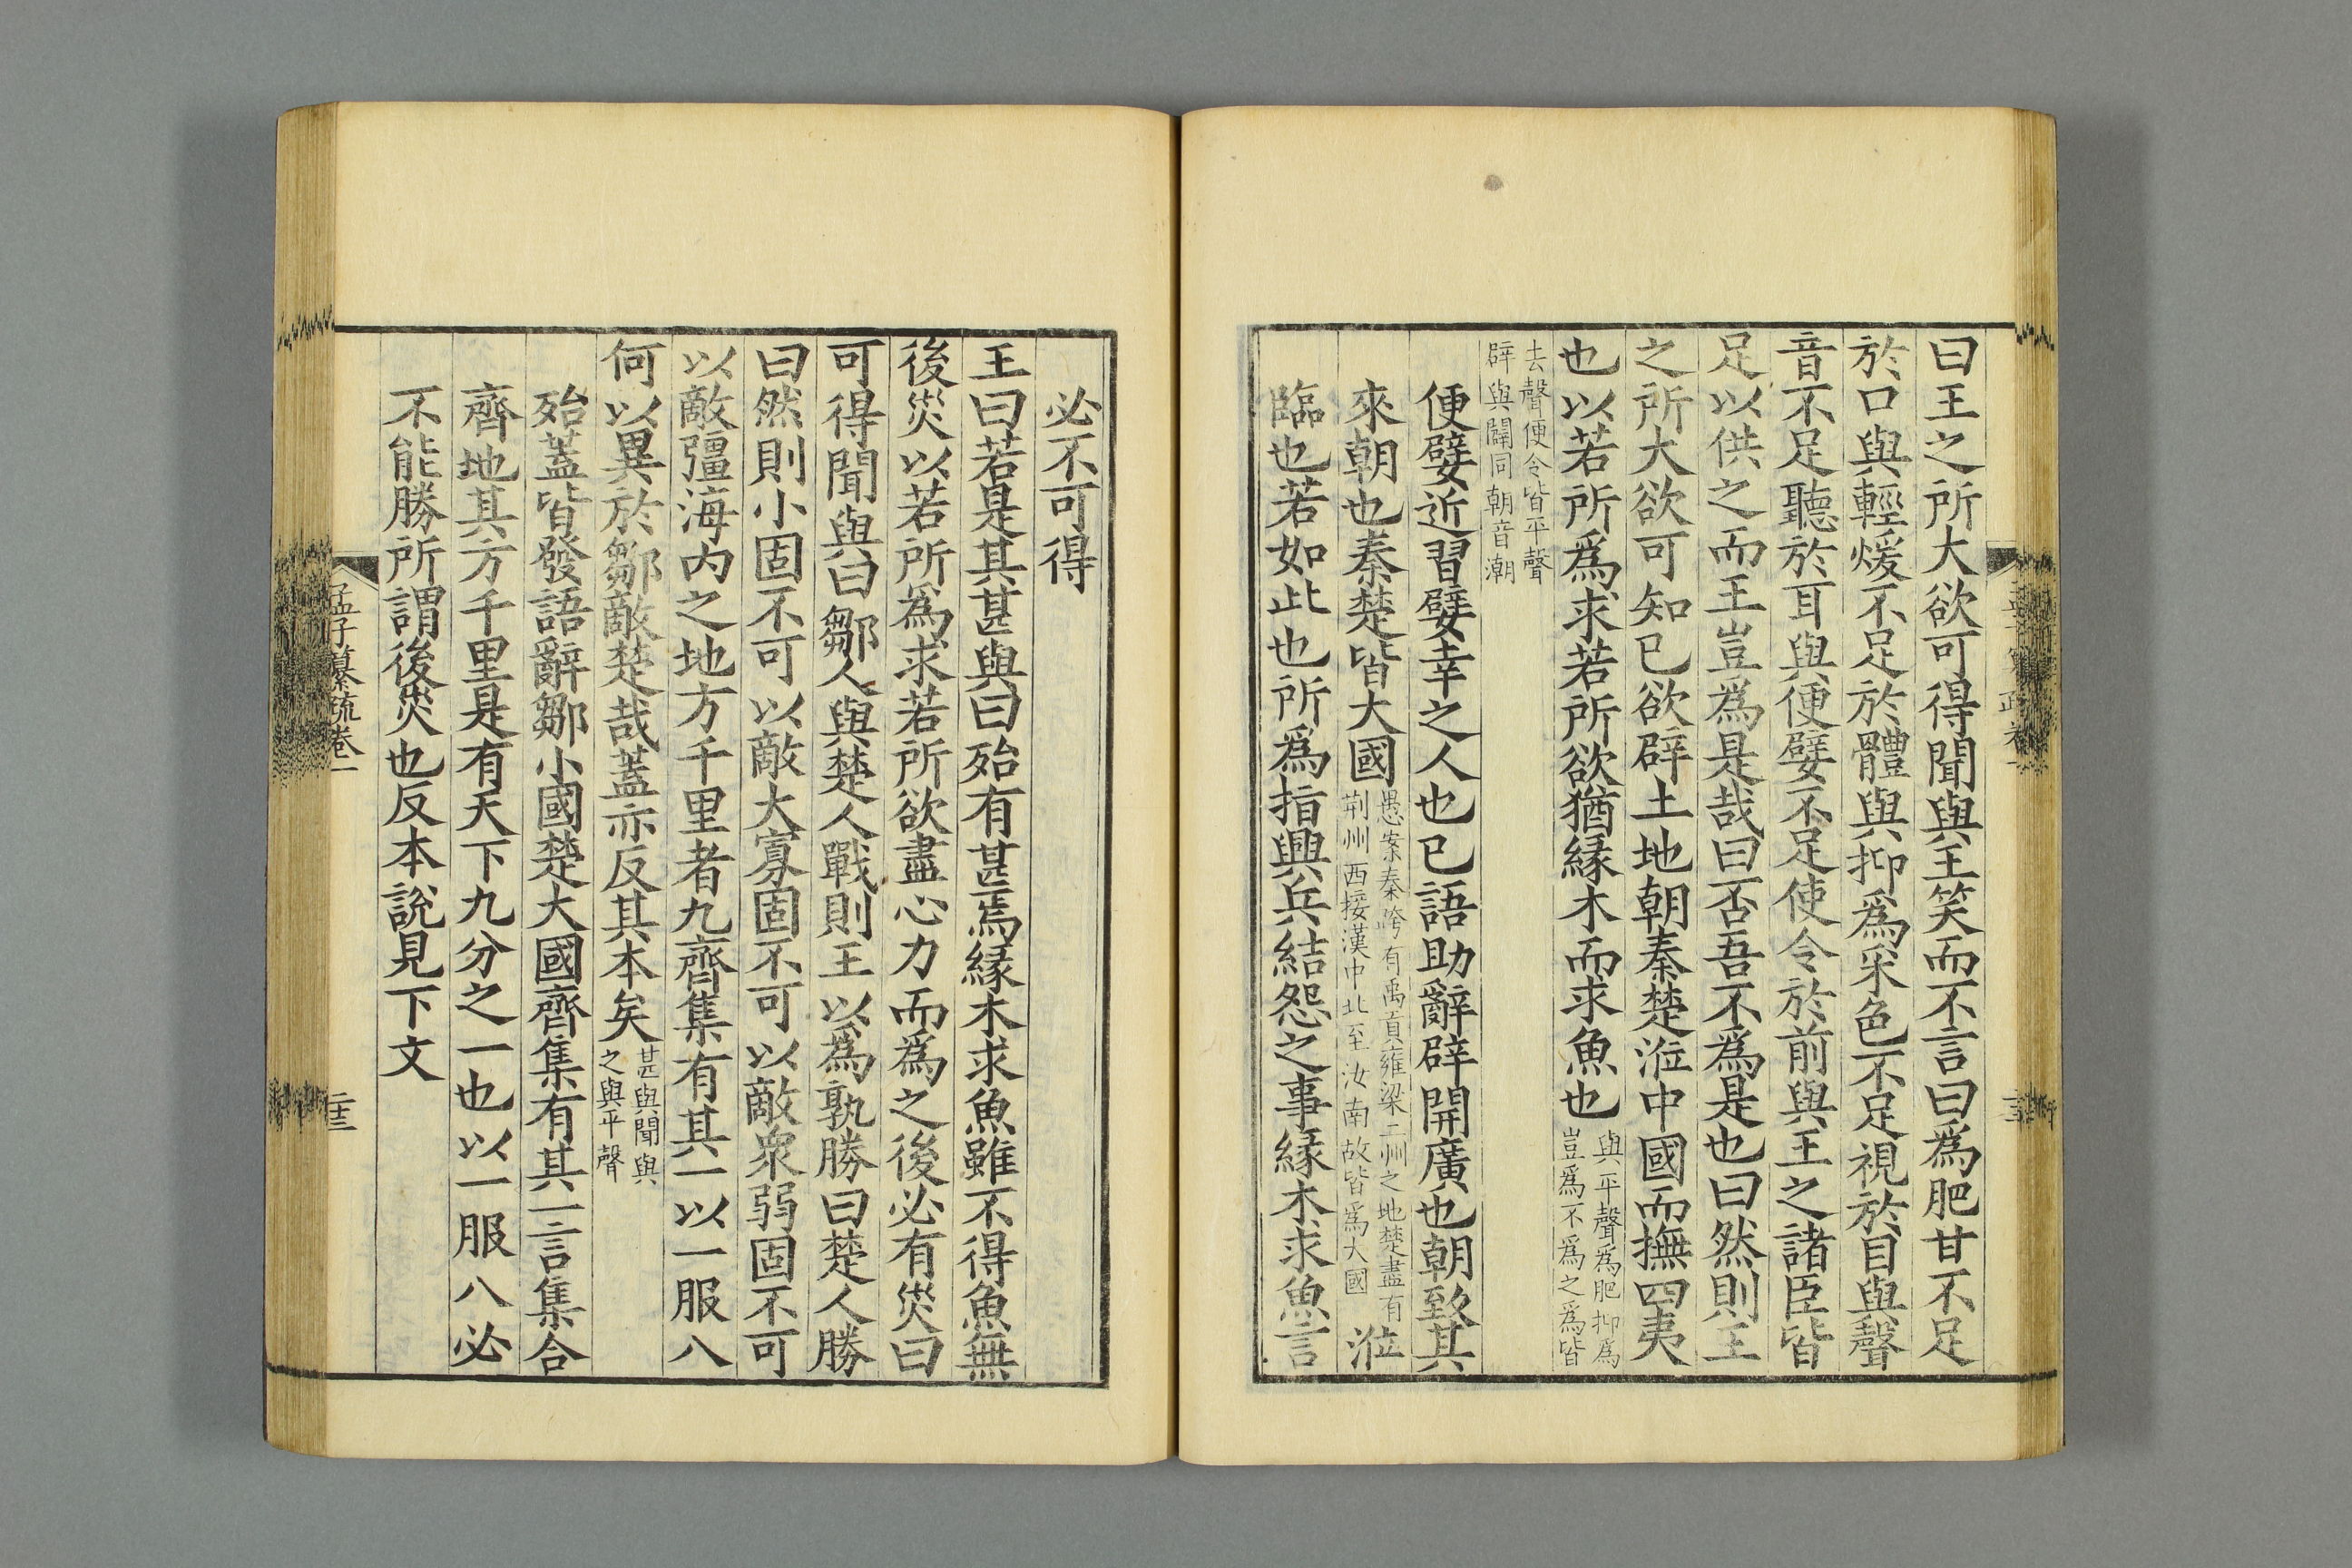 曰王之所大欲可得聞與王笑而不言曰爲肥甘不足
於口與輕煖不足於體與抑爲采色不足視於目與聲
音不足聽於耳與便嬖不足使令於前與王之諸臣皆
足以供之而王豈爲是哉曰否吾不爲是也曰然則王
之所大欲可知已欲辟土地朝秦楚涖中國而撫四夷
也以若所爲求若所欲猶緣木而求魚也
與平聲爲肥抑爲
豈爲不爲之爲皆
去聲便令皆平聲
辟與闢同朝音潮
便嬖近習嬖幸之人也已語助辭辟開廣也朝致其
來朝也秦楚皆大國
愚案秦跨有禹貢雍梁二州之地楚盡有
荆州西接漢中北至汝南故皆爲大國
涖
臨也若如此也所爲指興兵結怨之事緣木求魚言
必不可得
王曰若是其甚與曰殆有甚焉緣木求魚雖不得魚無
後災以若所爲求若所欲盡心力而爲之後必有災曰
可得聞與曰鄒人與楚人戰則王以爲孰勝曰楚人勝
曰然則小固不可以敵大寡固不可以敵衆弱固不可
以敵彊海内之地方千里者九齊集有其一以一服八
何以異於鄒敵楚哉蓋亦反其本矣
甚與聞與
之與平聲
殆蓋皆發語辭鄒小國楚大國齊集有其一言集合
齊地其方千里是有天下九分之一也以一服八必
不能勝所謂後災也反本說見下文
孟子纂疏卷一
二十三